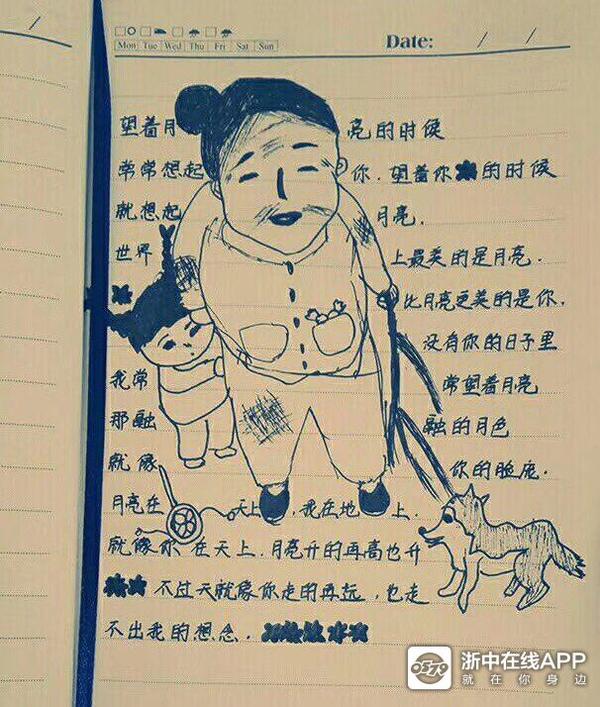 Date: / /
Mon Tue Wed Thu Fri Sat Sun
望着月亮的时候
常常想起你.望着你的时候
就想起月亮.
世界上最美的是月亮.
比月亮更美的是你,
没有你的日子里
我常常望着月亮
那融融的月色
就像你的脸庞.
月亮在天上,我在地上.
就像你在天上.月亮升的再高也升
不过天就像你走的再远,也走
不出我的想念.
浙中在线APP
就在你身边